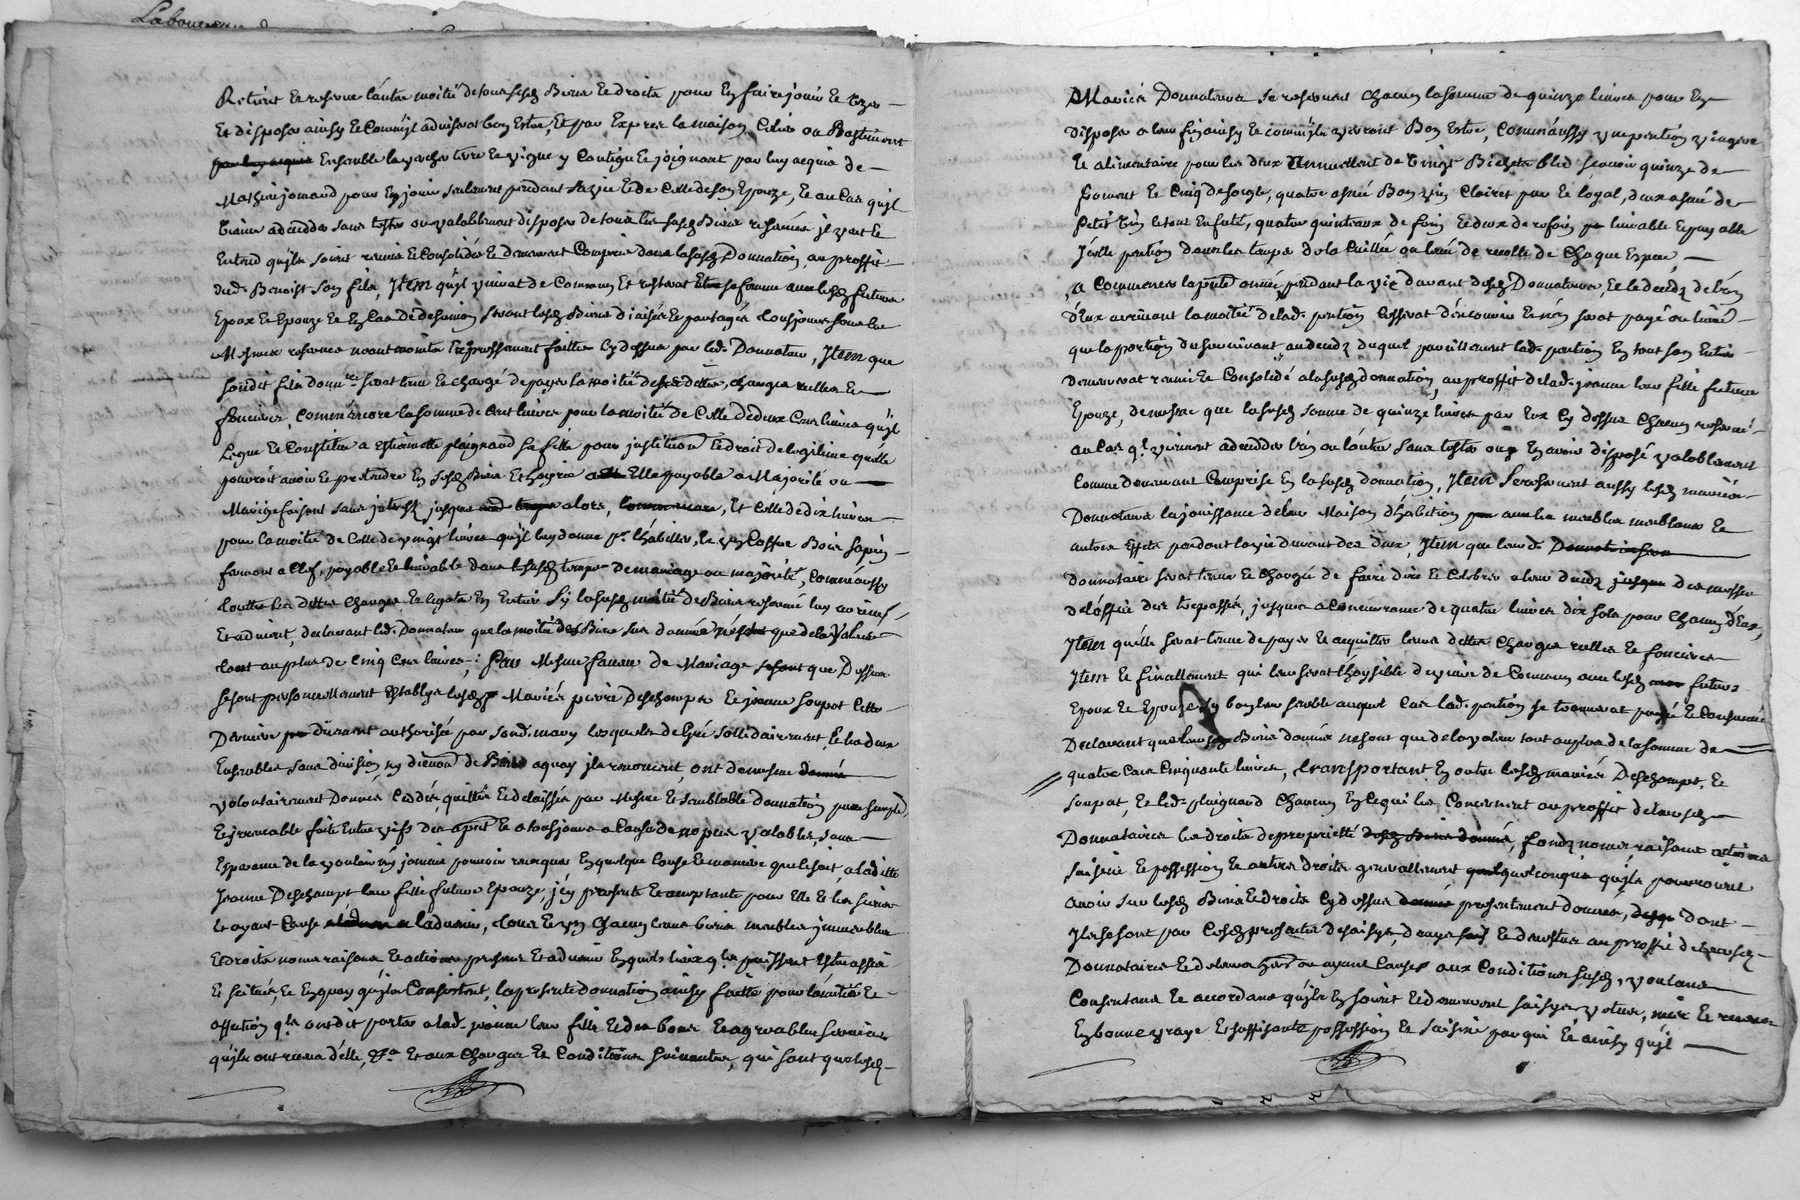 Labour
Retient Et reserve l'autre moitié de tous sesd. Biens Et droits pour En faire jouir Et user
Et disposer ainsy Et Comm'il adviserat bon Estre, Et par Exprès la maison, Celier ou Bastiment
Ensemble la vacher terre Et vigne y Contigüe Et joignant par luy acquis de
Mathieu jomand pour En jouir seulement pendant sa vie Et de Celle de son Epouze, Et au Cas qu'jl
vienne adecedder sans tester ou valablement disposer de tous les susd. Biens reservés jl veut Et
Entend qu'jls soient reunis Et Consolidés Et demeurent Compris dans la susd. Donnation, au proffit
dud. Benoist son fils, Jtem qu'jl vivrat de Commun Et resterat sa femme avec lesd. futurs
Epoux Et Epouze Et En Cas de desunion seront lesd. Biens divisés Et partagés tousjours sous les
Mesmes reserves neantmoins Expressement faittes Cy dessus par led. Donnateur, Jtem que
sondit fils donn.re serat tenu Et chargé de payer la moitié des dettes, charges reelles Et
foncières, Comm'encore la somme de Cent livres pour la moitié de Celle de deux Cens livres qu'jl
Legue Et Constitue a Estiennette plaignard sa fille pour justitution Et droit de legitime qu'elle
pouroit avoir Et pretendre En sesd. Biens Et hoyrie a Elle payable a Majorité ou
Mariage faisant sans jnterest jusques alors, Et Celle de dix livres
pour la moitié de Celle de vingt livres qu'jl luy donne p.r l'habiller, Et un Coffre Bois sapin
fermant a Clef, payable Et livrable dans le susd. temps de mariage ou majorité, Comm'aussy
touttes les dettes charges Et legats En Entier sy la susd. moitié de Biens reservée luy avient
Et advient, declarant led. Donnateur que la moitié des Biens sus donnés n'est que de la Valeur
tout au plus de Cinq Cens livres; Par Mesme faveur de Mariage que Dessus
se sont personnellement Establys lesd. Mariés pierre Deschamps Et jeanne soupat Cette
Derniere dûement authorisée par sond. mary lesquels de gré sollidairement, Et les deux
Ensembles sans division ny discution de Biens aquoy jls renoncent, ont de mesme
volontairement Donnés Ceddés quittés Et delaissés par Mesme Et semblable donnation pure simple
Et jrrevocable faite Entre vifs des apresent Et a tousjours a Cause de nopces valable, sans
Esperance de la vouloir ny jamais pouvoir revoquer En quelque Cause Et maniere que Ce soit, a laditte
Jeanne Deschamps leur fille future Epouze, jcy presente Et acceptante pour Elle Et les siens
Et ayant Cause a ladvenir, tous Et un Chacun leurs biens meubles jmmeubles
Et droits noms raisons Et actions presens Et advenir En quels lieux q'ls puissent Estre assis
Et scitués, Et En quoy qu'jls Consistent, la presente donnation ainsy faitte pour l'amitié Et
affection q'ls ont dit porter a lad. jeanne leur fille Et des bons Et agreables services
qu'jls ont receus d'elle, &.a Et aux Charges Et Conditions suivantes, qui sont que lesd.
Mariés Donnateurs se reservent chacun la somme de quinze livres pour En
disposer a leur fin ainsy Et comm'jls verront Bon Estre, Comm'aussy une pention viagere
Et alimentaire pour les deux annuellement de vingt Bichets bled sçavoir quinze de
froment Et Cinq de soigle, quatre asnée Bon vin Clairet pur Et loyal, deux asnée de
Petit Vin le tout En futé, quatre quinteaux de foin Et deux de refoin livrable Et payable
Jcelle pention dans les temps de la Cuillie ou levée de recolte de Chaque Espece,
a Commencer la p.nte année pendant la vie durant desd. Donnateurs, Et le decedz de l'un
d'Eux arrivant la moitié de lad. pention Cesserat d'encourir Et n'en serat payé ou livré
que la portion du survivant au decedz duquel pareillement lad. pention En tout son Entier
demeurerat reunie Et Consolidé a la susd. donnation, au proffit de lad. jeanne leur fille future
Epouze, de mesme que la susd. somme de quinze livres par Eux Cy dessus Chacun reservé
au Cas q.l vinrent adecedder l'un ou l'autre sans tester ou En avoir disposé valablement
Comme demeurant Comprise En la susd. donnation, Jtem se reservent aussy lesd. mariés
Donnateurs la jouissance de leur Maison d'habittion avec les meubles meublans Et
autres Effets pendant la vie durant des deux, Jtem que leurd.
donnataire serat tenue Et chargée de faire dire Et Celebrer a leur decedz des messes
de l'office des trepassés, jusques a Concurrance de quatre livres dix sols pour Chacun d'Eux,
Jtem qu'elle serat tenue de payer Et acquitter leurs dettes Charges reelles Et foncieres
Jtem Et finallement qui leur serat Loysible de vivre de Commun avec lesd. futurs
Epoux Et Epouze sy bon leur semble auquel Cas lad. pention se trouverat payée Et Consumée
Declarant que leursd. Biens donnés ne sont que de la valeur tout au plus de la somme de
quatre Cens Cinquante livres, transportant En outre lesd. mariés Deschamps, Et
soupat, Et led. plaignard Chacun En Ce qui les Concernent au proffit de leursd.
Donnataires les droits de proprietté, fondz noms raisons actions
saisine Et possession Et autres droits generallement quelconques qu'jls pourroient
avoir sur lesd. Biens Et droits Cy dessus presentement donnés, dont
Jls se sont par Cesd. presentes desaisys, Et devestus au proffit de leursd.
Donnataires Et de leurs hers ou ayant Causes aux Conditions susd., voulans
Consentans Et accordans qu'jls En soient Et demeurent saisys vetus,
En bonne vraye Et suffisante possession Et saisine par qui Et ainsy qu'jl